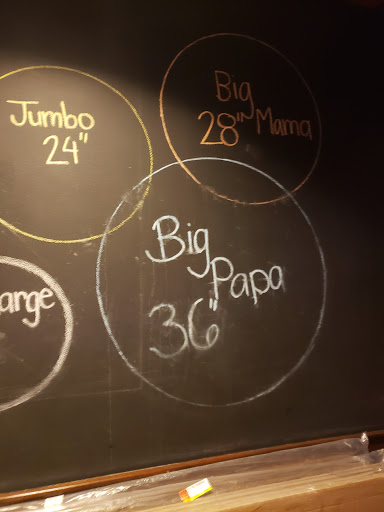 Jumbo
24"
Big
28" Mama
Big
Papa
36"
arge